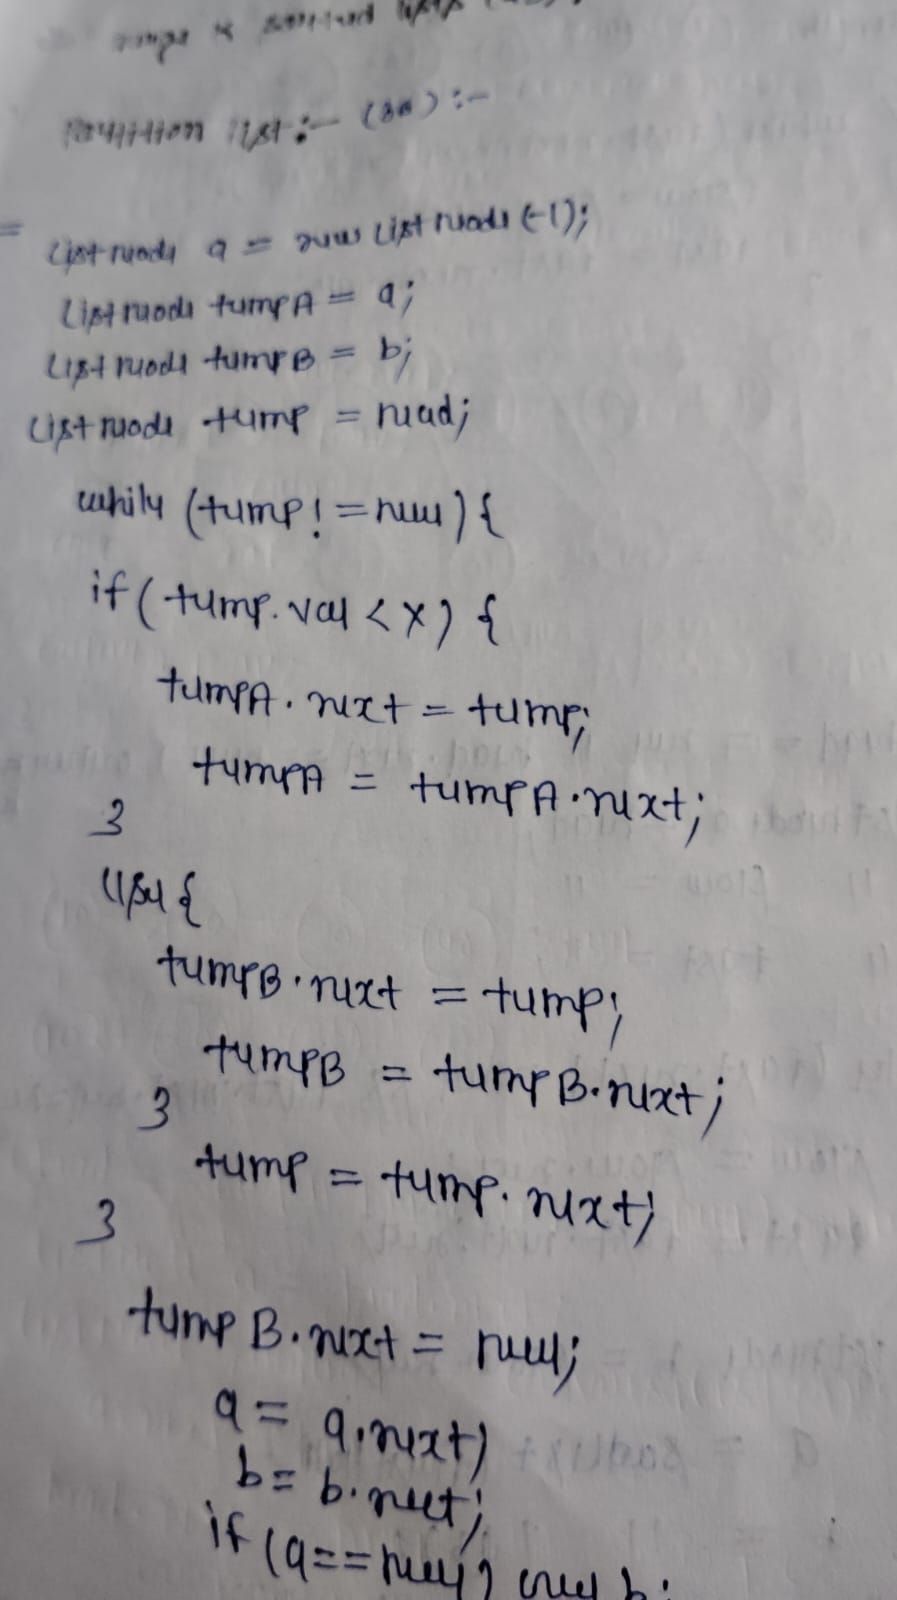 Partition list :- (86) :-
ListNode a = new ListNode(-1);
ListNode tempA = a;
ListNode tempB = b;
ListNode temp = head;
while (temp != null) {
if (temp.val < x) {
tempA.next = temp;
tempA = tempA.next;
}
else {
tempB.next = temp;
tempB = tempB.next;
}
temp = temp.next;
}
tempB.next = null;
a = a.next;
b = b.next;
if (a == null) b;